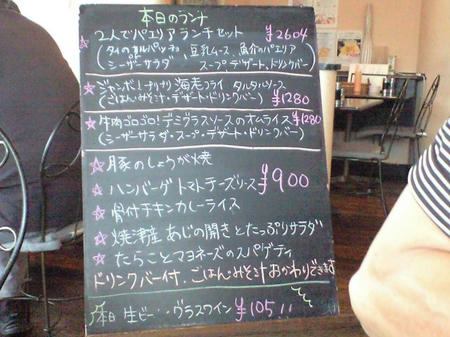 本日のランチ
☆ 2人でパエリアランチセット ¥2604
(タイのカルパッチョ、豆乳ムース、魚介のパエリア
シーザーサラダ スープ デザート、ドリンクバー)
☆ ジャンボ!ナリナリ 海老フライ タルタルソース
(ごはん・みそ汁・デザート・ドリンクバー) ¥1280
☆ 牛肉ゴロゴロ! デミグラスソースのオムライス ¥1280
(シーザーサラダ・スープ・デザート・ドリンクバー)
☆ 豚のしょうが焼
☆ ハンバーグ トマトチーズソース ¥900
☆ 骨付チキンカレーライス
☆ 焼津産 あじの開きとたっぷりサラダ
☆ たらことマヨネーズのスパゲティ
ドリンクバー付、ごはん・みそ汁おかわりできます
本日 生ビール・グラスワイン ¥105!!